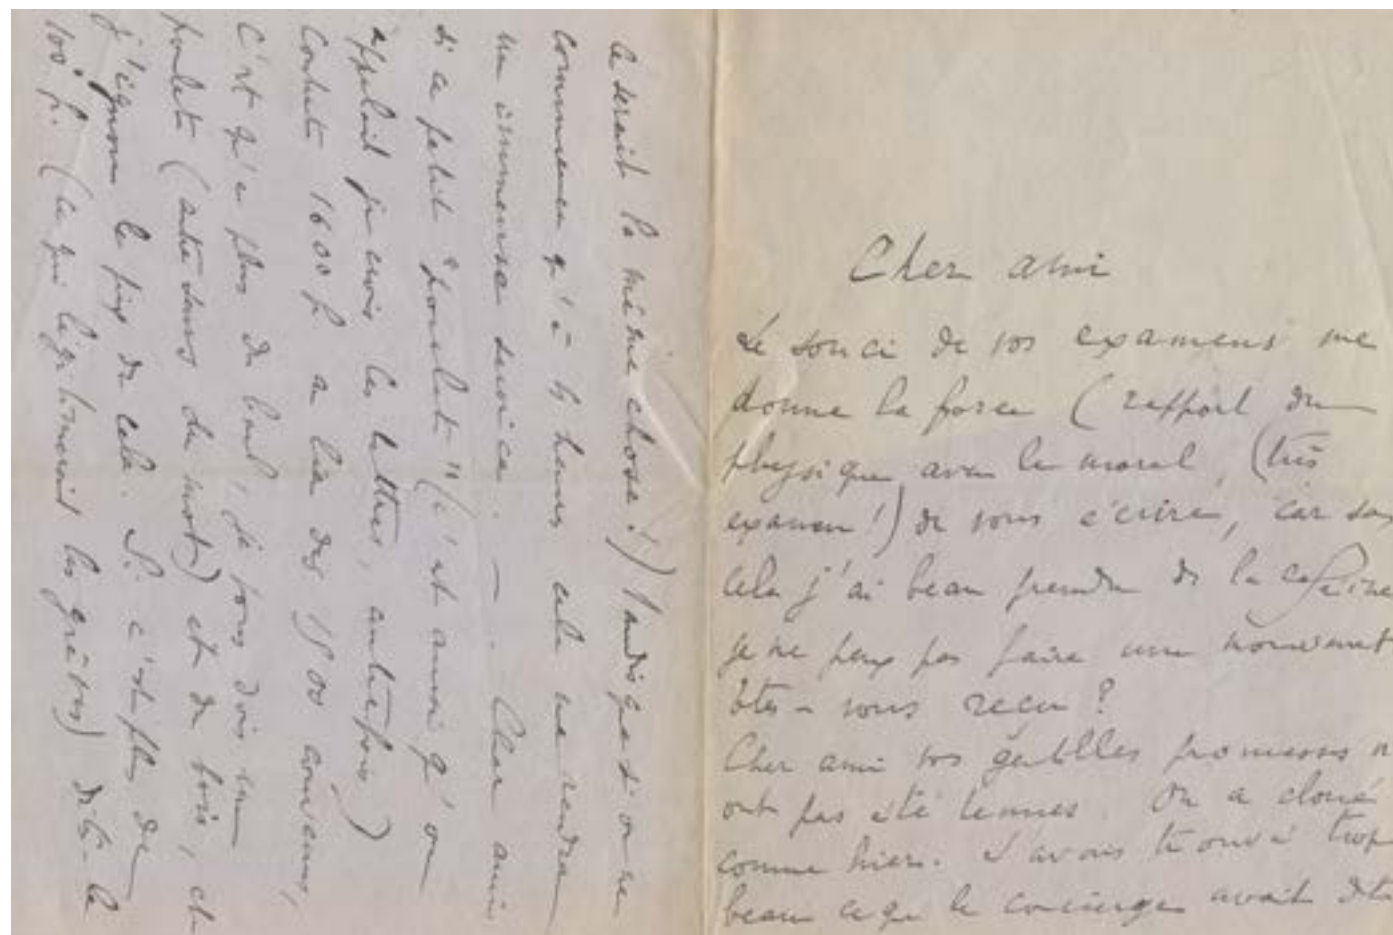 Cher ami
Le souci de vos examens me
donne la force (rapport du
physique avec le moral, (très
examen!) de vous écrire, car sans
cela j'ai beau prendre de la caféine
je ne peux pas faire un mouvement
Êtes-vous reçu?
Cher ami vos gentilles promesses n'
ont pas été tenues. On a cloué
comme hier. J'avais trouvé trop
beau ce que le concierge avait dit
ce serait la même chose!) tandis que si on ne
commence qu'à 4 heures cela me rendra
un immense service. — . Cher ami
si ce petit "poulet" (c'est ainsi qu'on
appelait je crois les lettres, autrefois)
contient 1600 f au lieu des 1500 convenus,
c'est qu'en plus du bail, je vous dois un
poulet (autre sens du mot) et du bois, et
j'ignore le prix de cela. Si c'est plus de
100 f. (ce qui légitimerait les grèves) dites-le